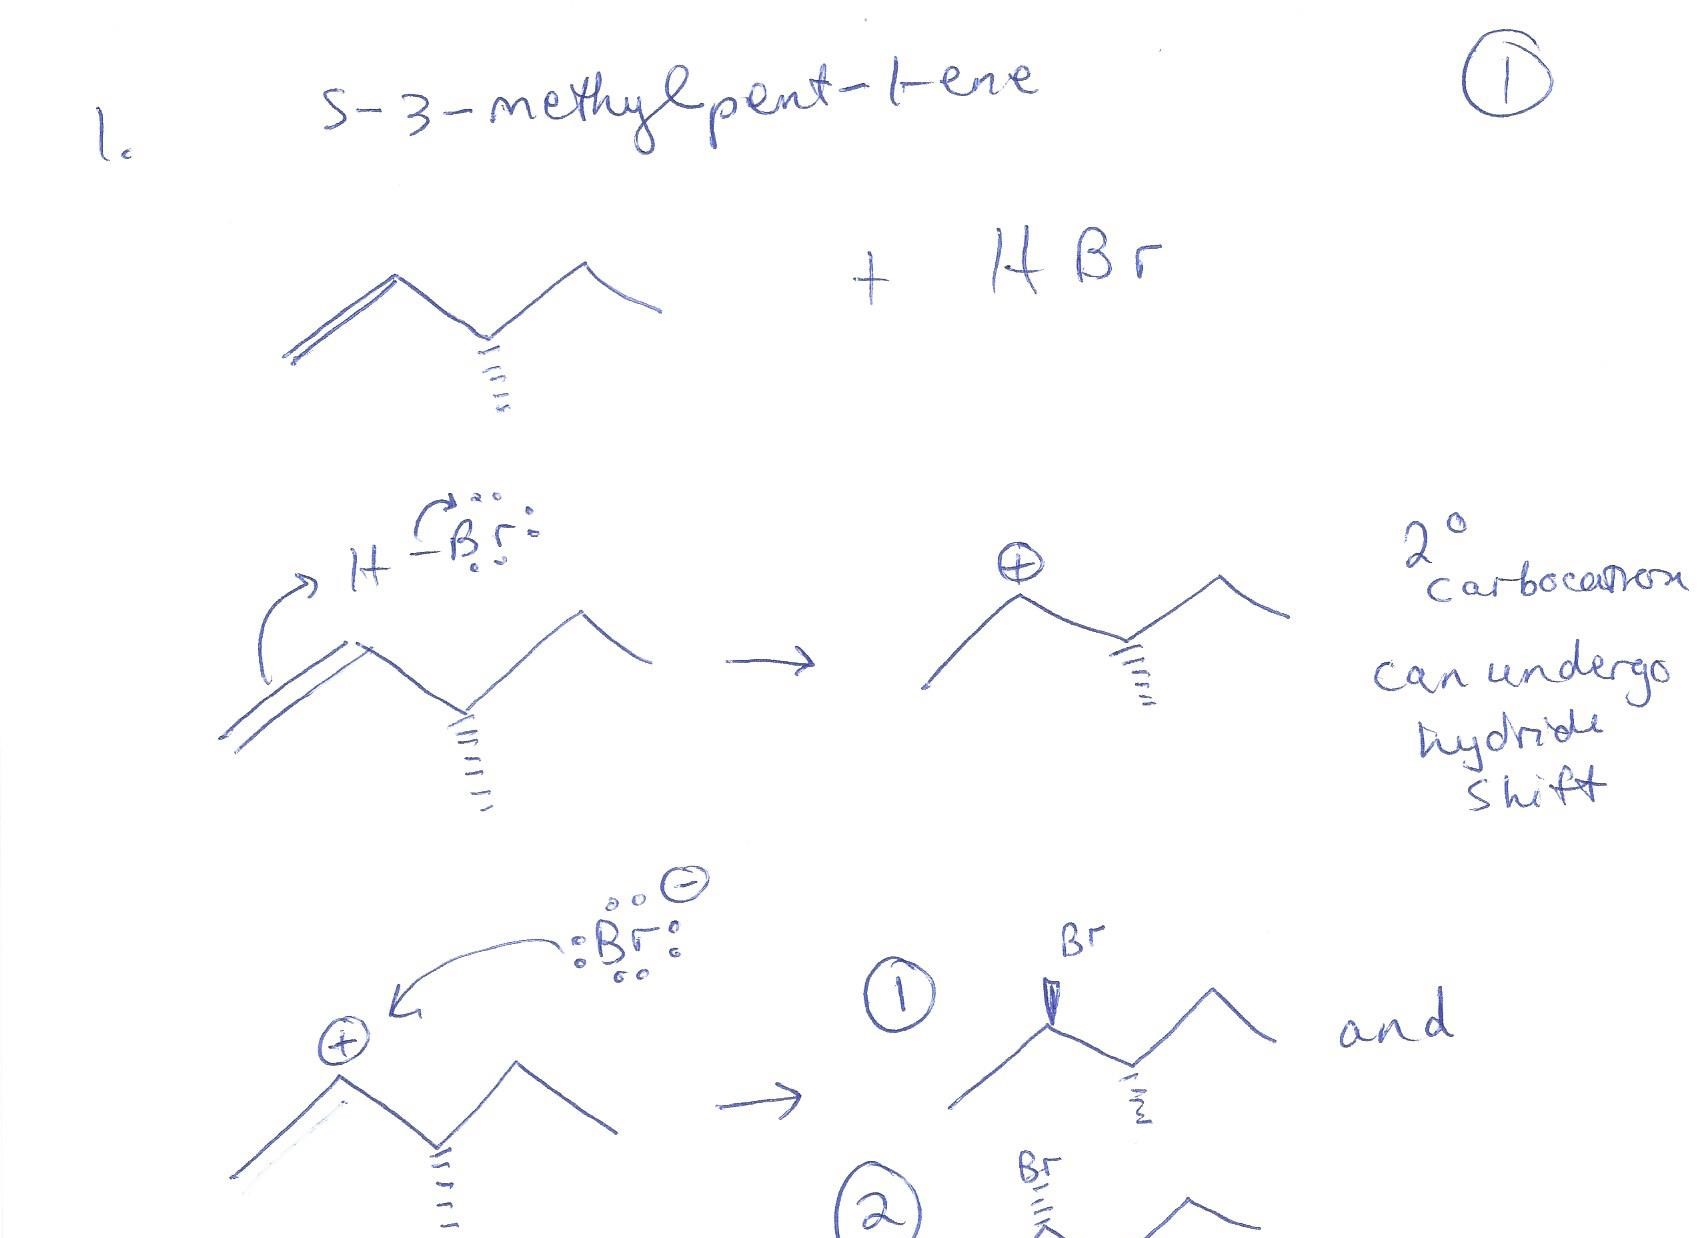 1. S-3-methylpent-1-ene ①
+ HBr
H-Br
⊕ 2° carbocation
can undergo
hydride
shift
Br ⊖
⊕
① Br and
② Br